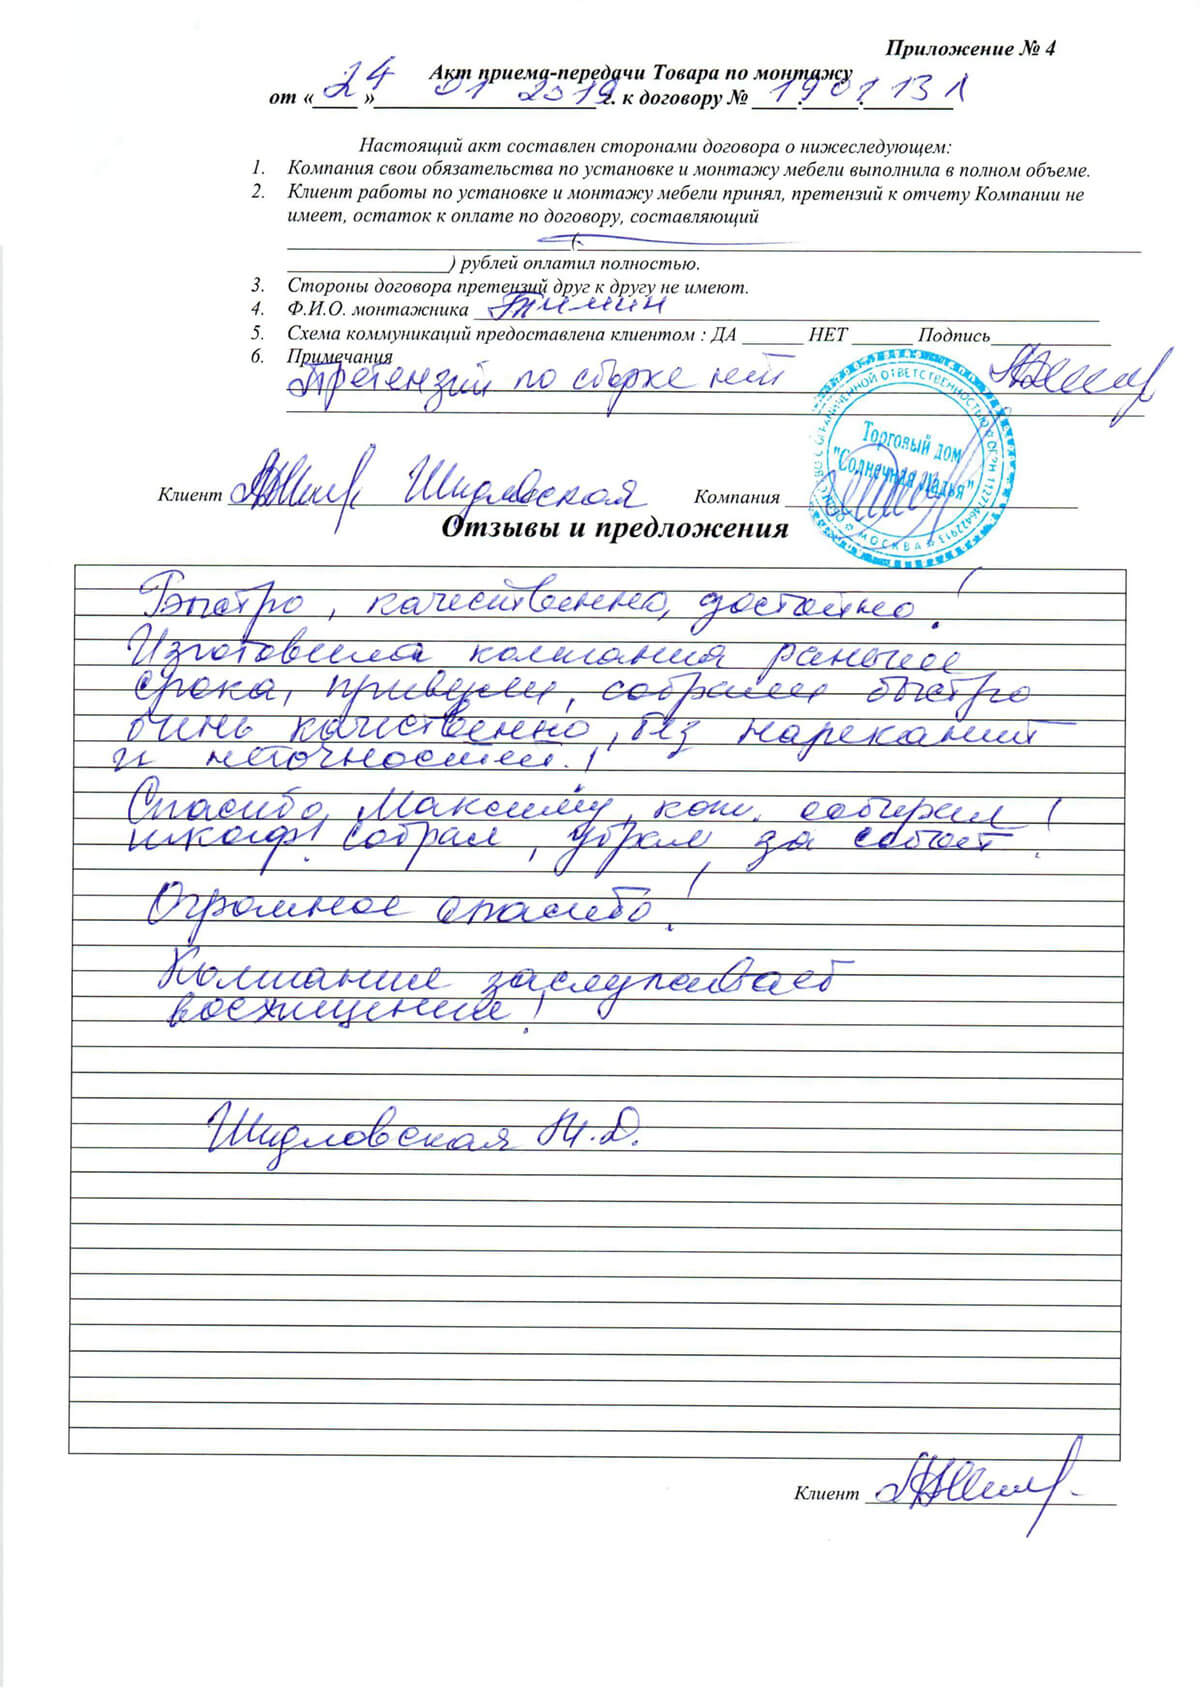 Приложение № 4
Акт приема-передачи Товара по монтажу
от « 24 » 01 2019 г. к договору № 19.01.131
Настоящий акт составлен сторонами договора о нижеследующем:
1. Компания свои обязательства по установке и монтажу мебели выполнила в полном объеме.
2. Клиент работы по установке и монтажу мебели принял, претензий к отчету Компании не
имеет, остаток к оплате по договору, составляющий
(
) рублей оплатил полностью.
3. Стороны договора претензий друг к другу не имеют.
4. Ф.И.О. монтажника Тимин
5. Схема коммуникаций предоставлена клиентом : ДА ______ НЕТ ______ Подпись
6. Примечания
Претензий по сборке нет
Торговый дом
"Солнечная Ладья"
МОСКВА
Клиент Шидловская Компания
Отзывы и предложения
Быстро, качественно, достойно!
Изготовила компания раньше
срока, привезли, собрали быстро
очень качественно, без нареканий
и неточностей!
Спасибо Максиму, кот. собирал
шкаф! Собрал, убрал за собой!
Огромное спасибо!
Компания заслуживает
восхищения!
Шидловская Н.Д.
Клиент